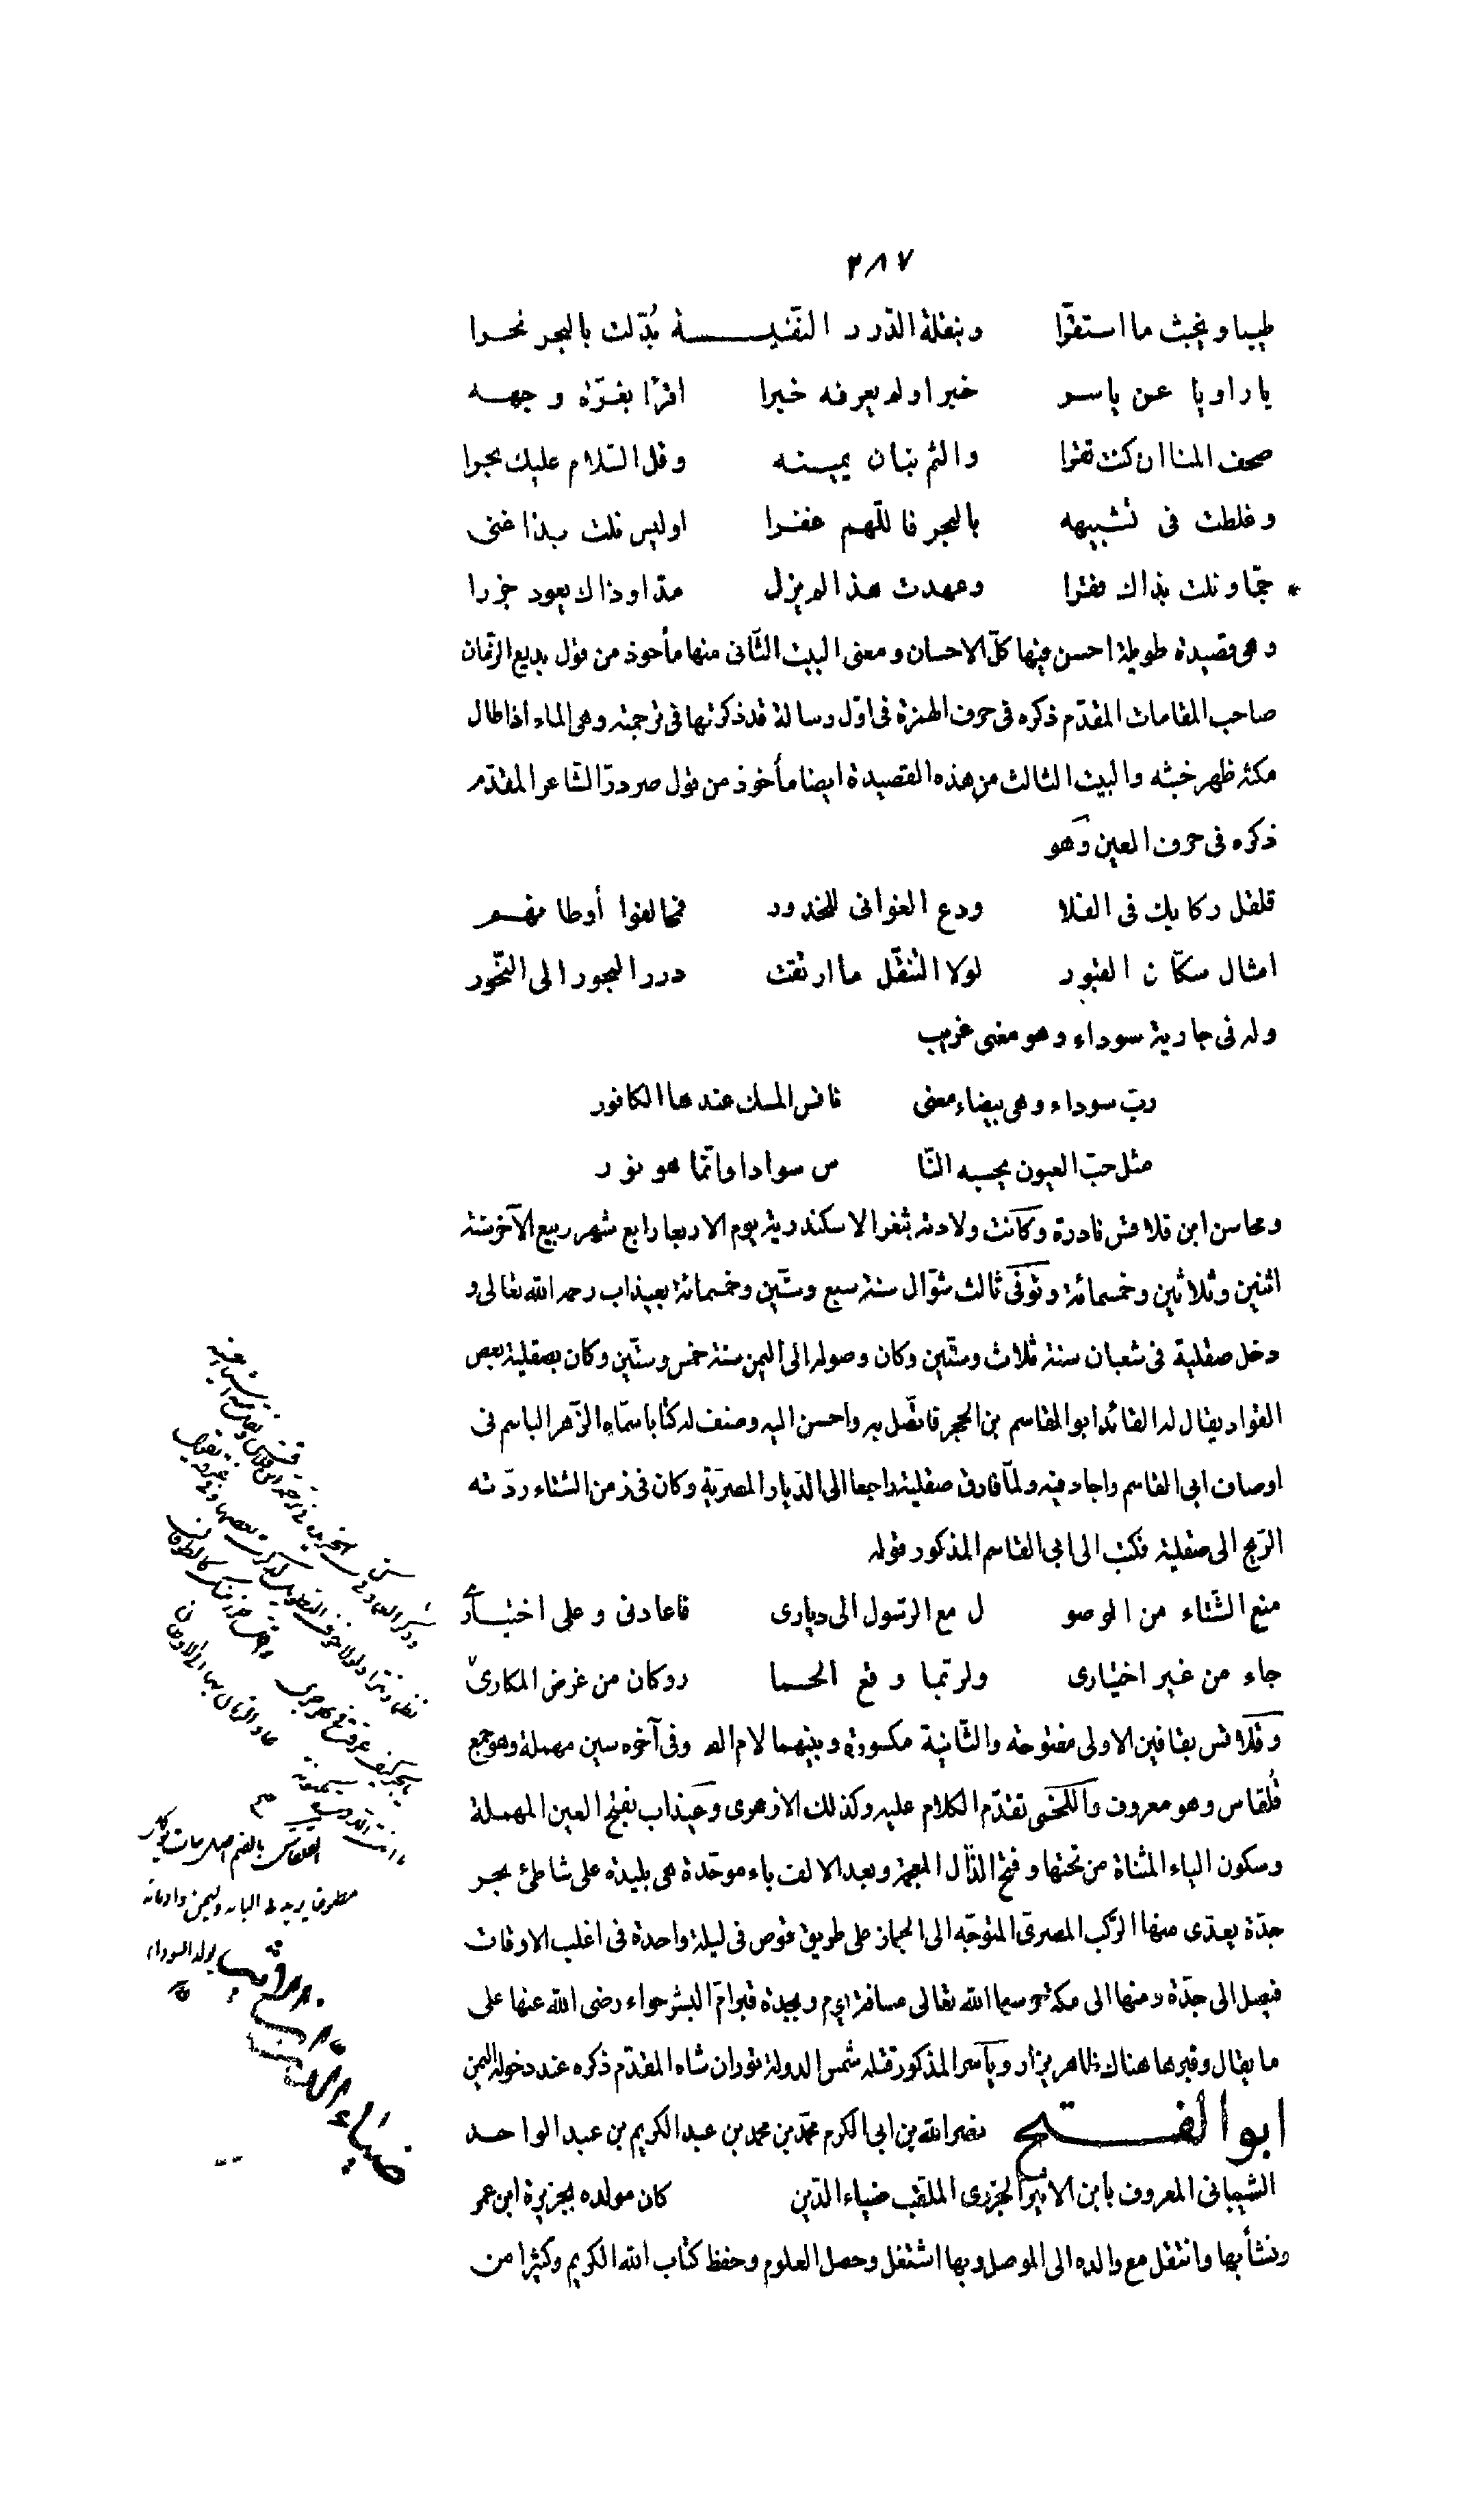 ٢٨٧
طيبا و يخبث ما استقرّا و بنقلة الدّرر النّفيسة بُدّلت بالبحر نحرا
يا راويا عن ياسر خبرا و لم يعرفه خبرا اقرأ بغرّة وجهه
صحف المنا ان كنت تقرا و الثم بنان يمينه و قل السّلام عليك بحرا
و غلطت فى تشبيهه بالبحر فاللّهم غفرا اوليس نلت بذا غنى
جمّا و نلت بذاك فقرا و عهدت هذا لم يزل مدّا و ذاك يعود جزرا
و هى قصيدة طويلة احسن فيها كلّ الاحسان و معنى البيت الثّانى منها مأخوذ من قول بديع الزّمان
صاحب المقامات المقدّم ذكره فى حرف الهمزة فى اوّل رسالة قد ذكرتها فى ترجمته و هى الماء اذا طال
مكثه ظهر خبثه و البيت الثالث من هذه القصيدة ايضا مأخوذ من قول صردرّ الشّاعر المقدّم
ذكره فى حرف العين و هو
قلقل ركابك فى الفلا ودع الغوانى للخدور فمحالفوا أوطانهم
امثال سكّان القبور لولا التنقّل ما ارتقت درر البحور الى النّحور
و له فى جارية سوداء و هو معنى غريب
ربّ سوداء و هى بيضاء معنى نافس المسك عندها الكافور
مثل حبّ العيون يحسبه النّا س سوادا و انّما هو نور
و محاسن ابن قلاقس نادرة و كانت ولادته بثغر الاسكندرية يوم الاربعا رابع شهر ربيع الآخر سنة
اثنين و ثلاثين و خمسمائة و توفى ثالث شوّال سنة سبع و ستّين و خمسمائة بعيذاب رحمه الله تعالى و
دخل صقلية فى شعبان سنة ثلاث و ستّين و كان وصوله الى اليمن سنة خمس و ستّين و كان بصقلية بعض
القواد يقال له القائد ابو القاسم بن الحجر فاتّصل به و احسن اليه و صنف له كتابا سمّاه الزّهر الباسم فى
اوصاف ابى القاسم و اجاد فيه و لمّا فارق صقلية راجعا الى الدّيار المصريّة و كان فى زمن الشتاء ردّته
الرّيح الى صقلية فكتب الى ابى القاسم المذكور قوله
منع الشّتاء من الوصو ل مع الرّسول الى ديارى فاعادنى و على اختيار
جاء من غير اختيارى و لربّما وقع الحما ر و كان من غرض المكارى
و قلاقس بقافين الاولى مفتوحة و الثّانية مكسورة و بينهما لام الف و فى آخره سين مهملة و هو جمع
قُلقاس و هو معروف و اللّخمى تقدّم الكلام عليه و كذلك الازهرى و عيذاب بفتح العين المهملة
و سكون الياء المثناة من تحتها و فتح الذّال المعجمة و بعد الالف باء موحّدة هى بليدة على شاطئ بحر
جدّة يعدّى منها الرّكب المصرىّ المتوجّه الى الحجاز على طريق قوص فى ليلة واحدة فى اغلب الاوقات
فيصل الى جدّة و منها الى مكة حرسها الله تعالى مسافة يوم و بجدة قبر امّ البشر حواء رضى الله عنها على
ما يقال و قبرها هناك ظاهر يزار و ياسر المذكور قتله شمس الدولة توران شاه المقدّم ذكره عند دخوله اليمن
ابو الفتح نصر الله بن ابى الكرم محمّد بن محمد بن عبد الكريم بن عبد الواحد
الشيبانى المعروف بابن الاثير الجزرى الملقب ضياء الدّين كان مولده بجزيرة ابن عمر
و نشأ بها و انتقل مع والده الى الموصل و بها اشتغل و حصل العلوم و حفظ كتاب الله الكريم و كثيرا من
ضياء الدين